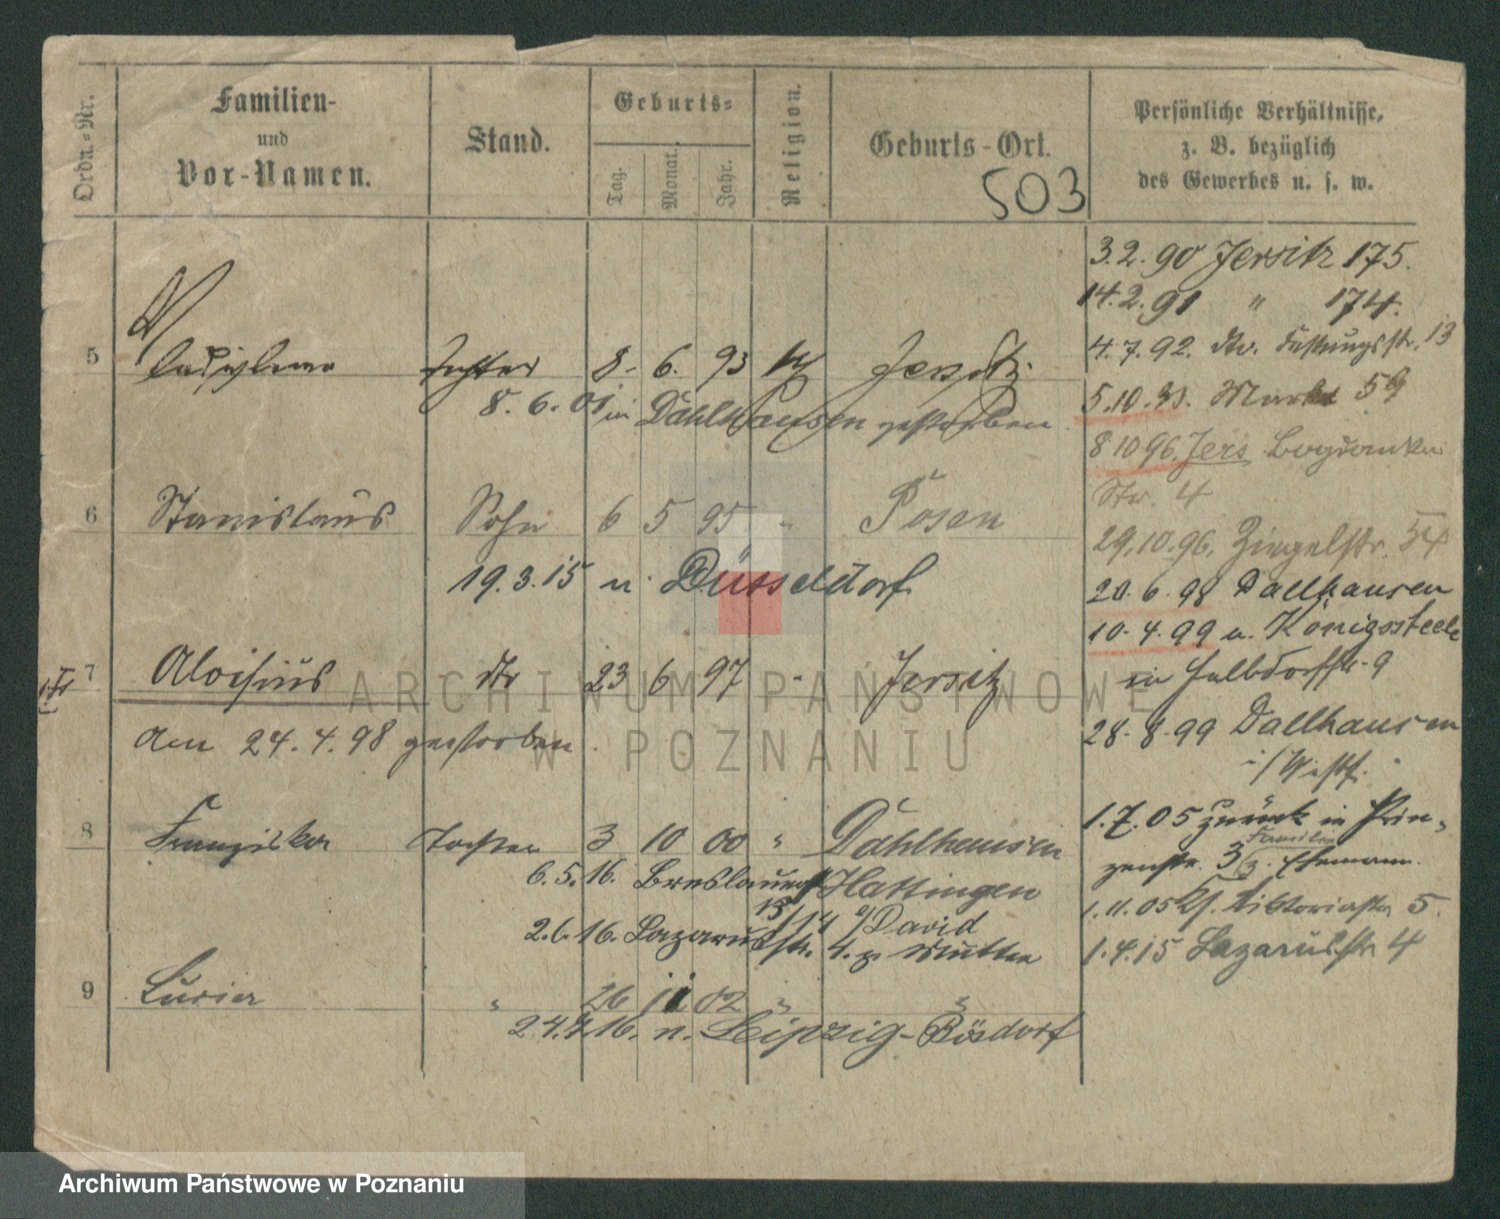 Ordn.-Nr.
Familien-
und
Vor-Namen.
Stand.
Geburts-
Tag.
Monat.
Jahr.
Religion.
Geburts-Ort.
503
Persönliche Verhältnisse,
z. B. bezüglich
des Gewerbes u. s. w.
5
Tochter 8. 6. 93 Jersitz
8. 6. 01 in Dahlhausen gestorben
6 Stanislaus Sohn 6 5 95 " Posen
19.3.15 n. Düsseldorf
7 Aloisius dto 23 6 97 " Jersitz
Am 24.4.98 gestorben.
8 Franziska Tochter 3 10 00 " Dahlhausen
6.5.16. Breslauerstr Hattingen
David
2.6.16. Lazarusstr. 4. z. Mutter
9 " 26 11 02 " "
24.7.16. n. Leipzig-Bösdorf
3.2.90 Jersitz 175.
14.2.91 " 174.
4.7.92. dto. 13
5.10.93. Markt 59
8 10 96. Jers Bogdanka
Str. 4
29.10.96. Ziegelstr. 54
20.6.98 Dallhausen
10.4.99 n. Königssteele
in 9
28.8.99 Dallhausen
i/Westf.
1.7.05 zurück in Prin-
zenstr. 3/3. Ehemann.
Familie
1.11.05 Viktoriastr 5.
1.4.15 Lazarusstr 4
ARCHIWUM PAŃSTWOWE
W POZNANIU
Archiwum Państwowe w Poznaniu